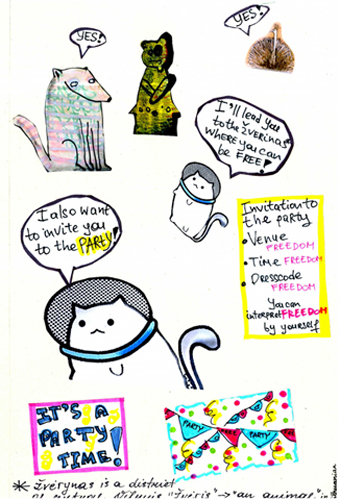 YES!
YES!
I'll lead you
to the ŽVĖRINAS*
WHERE you can
be FREE!
I also want
to invite you
to the PARTY!
Invitation to
the party
• Venue
FREEDOM
• Time FREEDOM
• Dresscode
FREEDOM
You can
interpret FREEDOM
by yourself
IT'S A
PARTY
TIME!
PARTY
PARTY
* Žvėrynas is a district
"žvėris" → "an animal" in